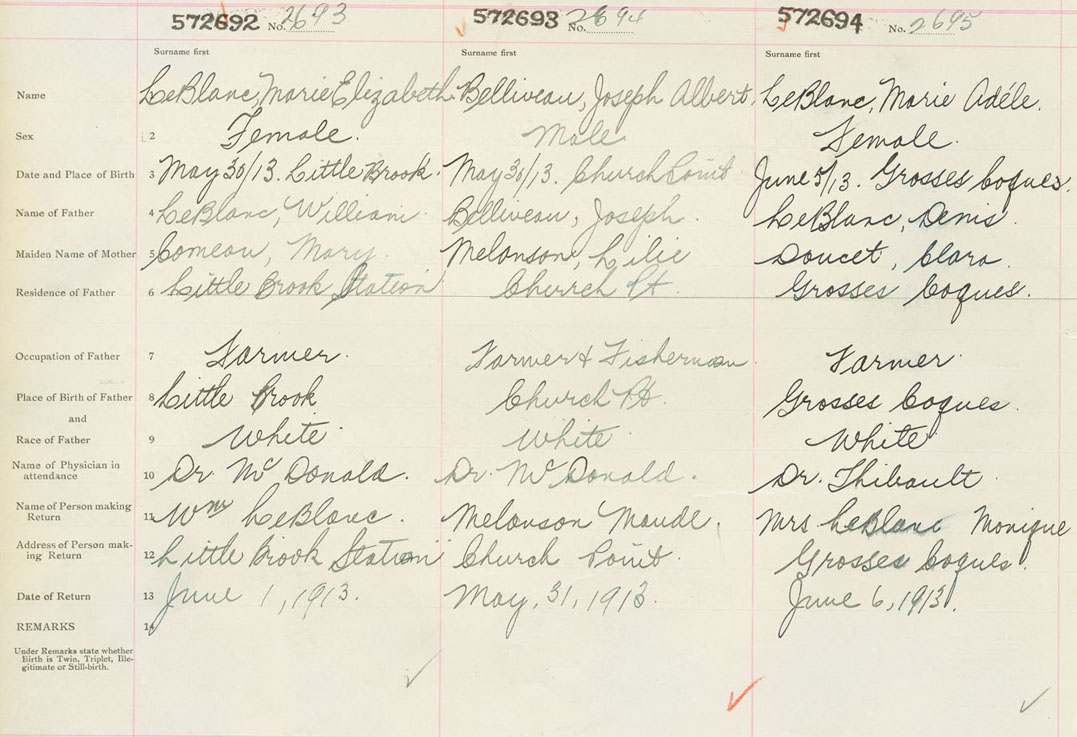 572692 No. 2693 572693 No. 2694 572694 No. 2695
Surname first Surname first Surname first
Name LeBlanc, Marie Elizabeth Belliveau, Joseph Albert. LeBlanc, Marie Adéle.
Sex 2 Female. Male Female.
Date and Place of Birth 3 May 30/13. Little Brook. May 30/13. Church Point June 5/13. Grosses Coques.
Name of Father 4 LeBlanc, William. Belliveau, Joseph. LeBlanc, Denis.
Maiden Name of Mother 5 Comeau, Mary. Melanson, Lilie Doucet, Clara.
Residence of Father 6 Little Brook Station Church Pt. Grosses Coques.
Occupation of Father 7 Farmer. Farmer & Fisherman Farmer.
Place of Birth of Father 8 Little Brook Church Pt. Grosses Coques.
and
Race of Father 9 White. White. White.
Name of Physician in
attendance 10 Dr McDonald. Dr. McDonald. Dr. Thibault.
Name of Person making
Return 11 Wm LeBlanc. Melanson Maude. Mrs LeBlanc Monique
Address of Person mak-
ing Return 12 Little Brook Station Church Point. Grosses Coques.
Date of Return 13 June 1, 1913. May, 31, 1913. June 6, 1913.
REMARKS 14
Under Remarks state whether
Birth is Twin, Triplet, Ille-
gitimate or Still-birth.